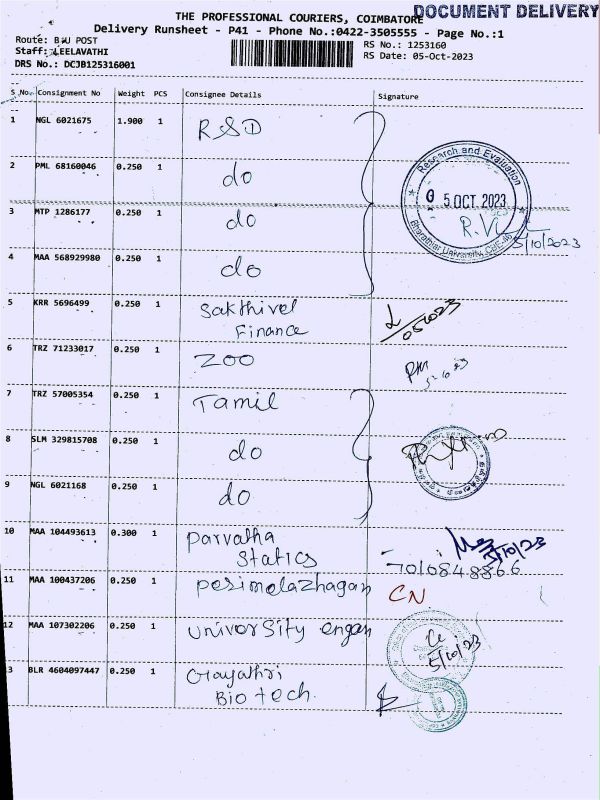 DOCUMENT DELIVERY
THE PROFESSIONAL COURIERS, COIMBATORE
Delivery Runsheet - P41 - Phone No.:0422-3505555 - Page No.:1
Route: B U POST
RS No.: 1253160
Staff: LEELAVATHI
RS Date: 05-Oct-2023
DRS No.: DCJB125316001
S No. Consignment No Weight PCS Consignee Details Signature
1 NGL 6021675 1.900 1 RSD
2 PML 68160046 0.250 1 do
Research and Evaluation
05 OCT 2023
Bharathiar University, CBE-46
3 MTP 1286177 0.250 1 do
5/10/2023
4 MAA 568929980 0.250 1 do
5 KRR 5696499 0.250 1 Sakthivel
Finance
6 TRZ 71233017 0.250 1 ZOO
7 TRZ 57005354 0.250 1 Tamil
8 SLM 329815708 0.250 1 do
9 NGL 6021168 0.250 1 do
10 MAA 104493613 0.300 1 Parvatha
Statics
5/10/23
7010848866
11 MAA 100437206 0.250 1 Perimelazhagan CN
12 MAA 107302206 0.250 1 University engan
5/10/23
13 BLR 4604097447 0.250 1 Gayathri
Bio tech.